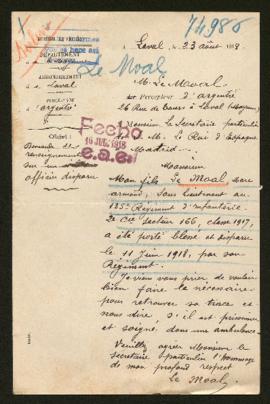 74986
Laval, le 23 août 1918
Le Moal
DÉPARTEMENT
M. Le Moal
ARRONDISSEMENT
Percepteur d'Argentré
de Laval
26 Rue de Tours à Laval
PERCEPTION
Monsieur le Secrétaire particulier
d'Argentré
de S. M. Le Roi d'Espagne
Madrid
Objet :
Fecho
Demande de
renseignements
e.a.e.
officier disparu
Monsieur
Mon fils Le Moal
armand, sous lieutenant au
Régiment d'Infanterie
2e Cie secteur 166, classe 1917,
a été porté blessé et disparu
le 11 Juin 1918, par son
Régiment.
Je viens vous prier de vouloir
bien faire le nécessaire
pour retrouver sa trace et
nous dire, s'il est prisonnier
et soigné dans une ambulance.
Veuillez agréer Monsieur le
secrétaire particulier l'hommage
de mon profond respect
Le Moal